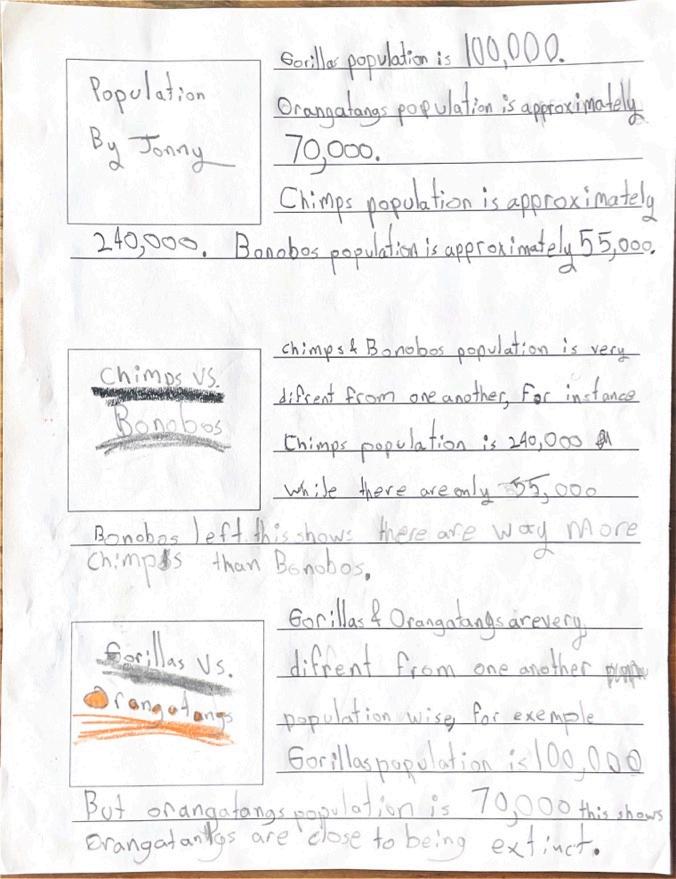 Population
By Jonny
Gorillas population is 100,000.
Orangatangs population is approximately
70,000.
Chimps population is approximately
240,000. Bonobos population is approximately 55,000.
Chimps vs.
Bonobos
Chimps & Bonobos population is very
difrent from one another, For instance
Chimps population is 240,000
While there are only 55,000
Bonobos left this shows there are way more
Chimps than Bonobos.
Gorillas vs.
Orangatangs
Gorillas & Orangatangs are very
difrent from one another
population wise, for exemple
Gorillas population is 100,000
But orangatangs population is 70,000 this shows
Orangatangs are close to being extinct.